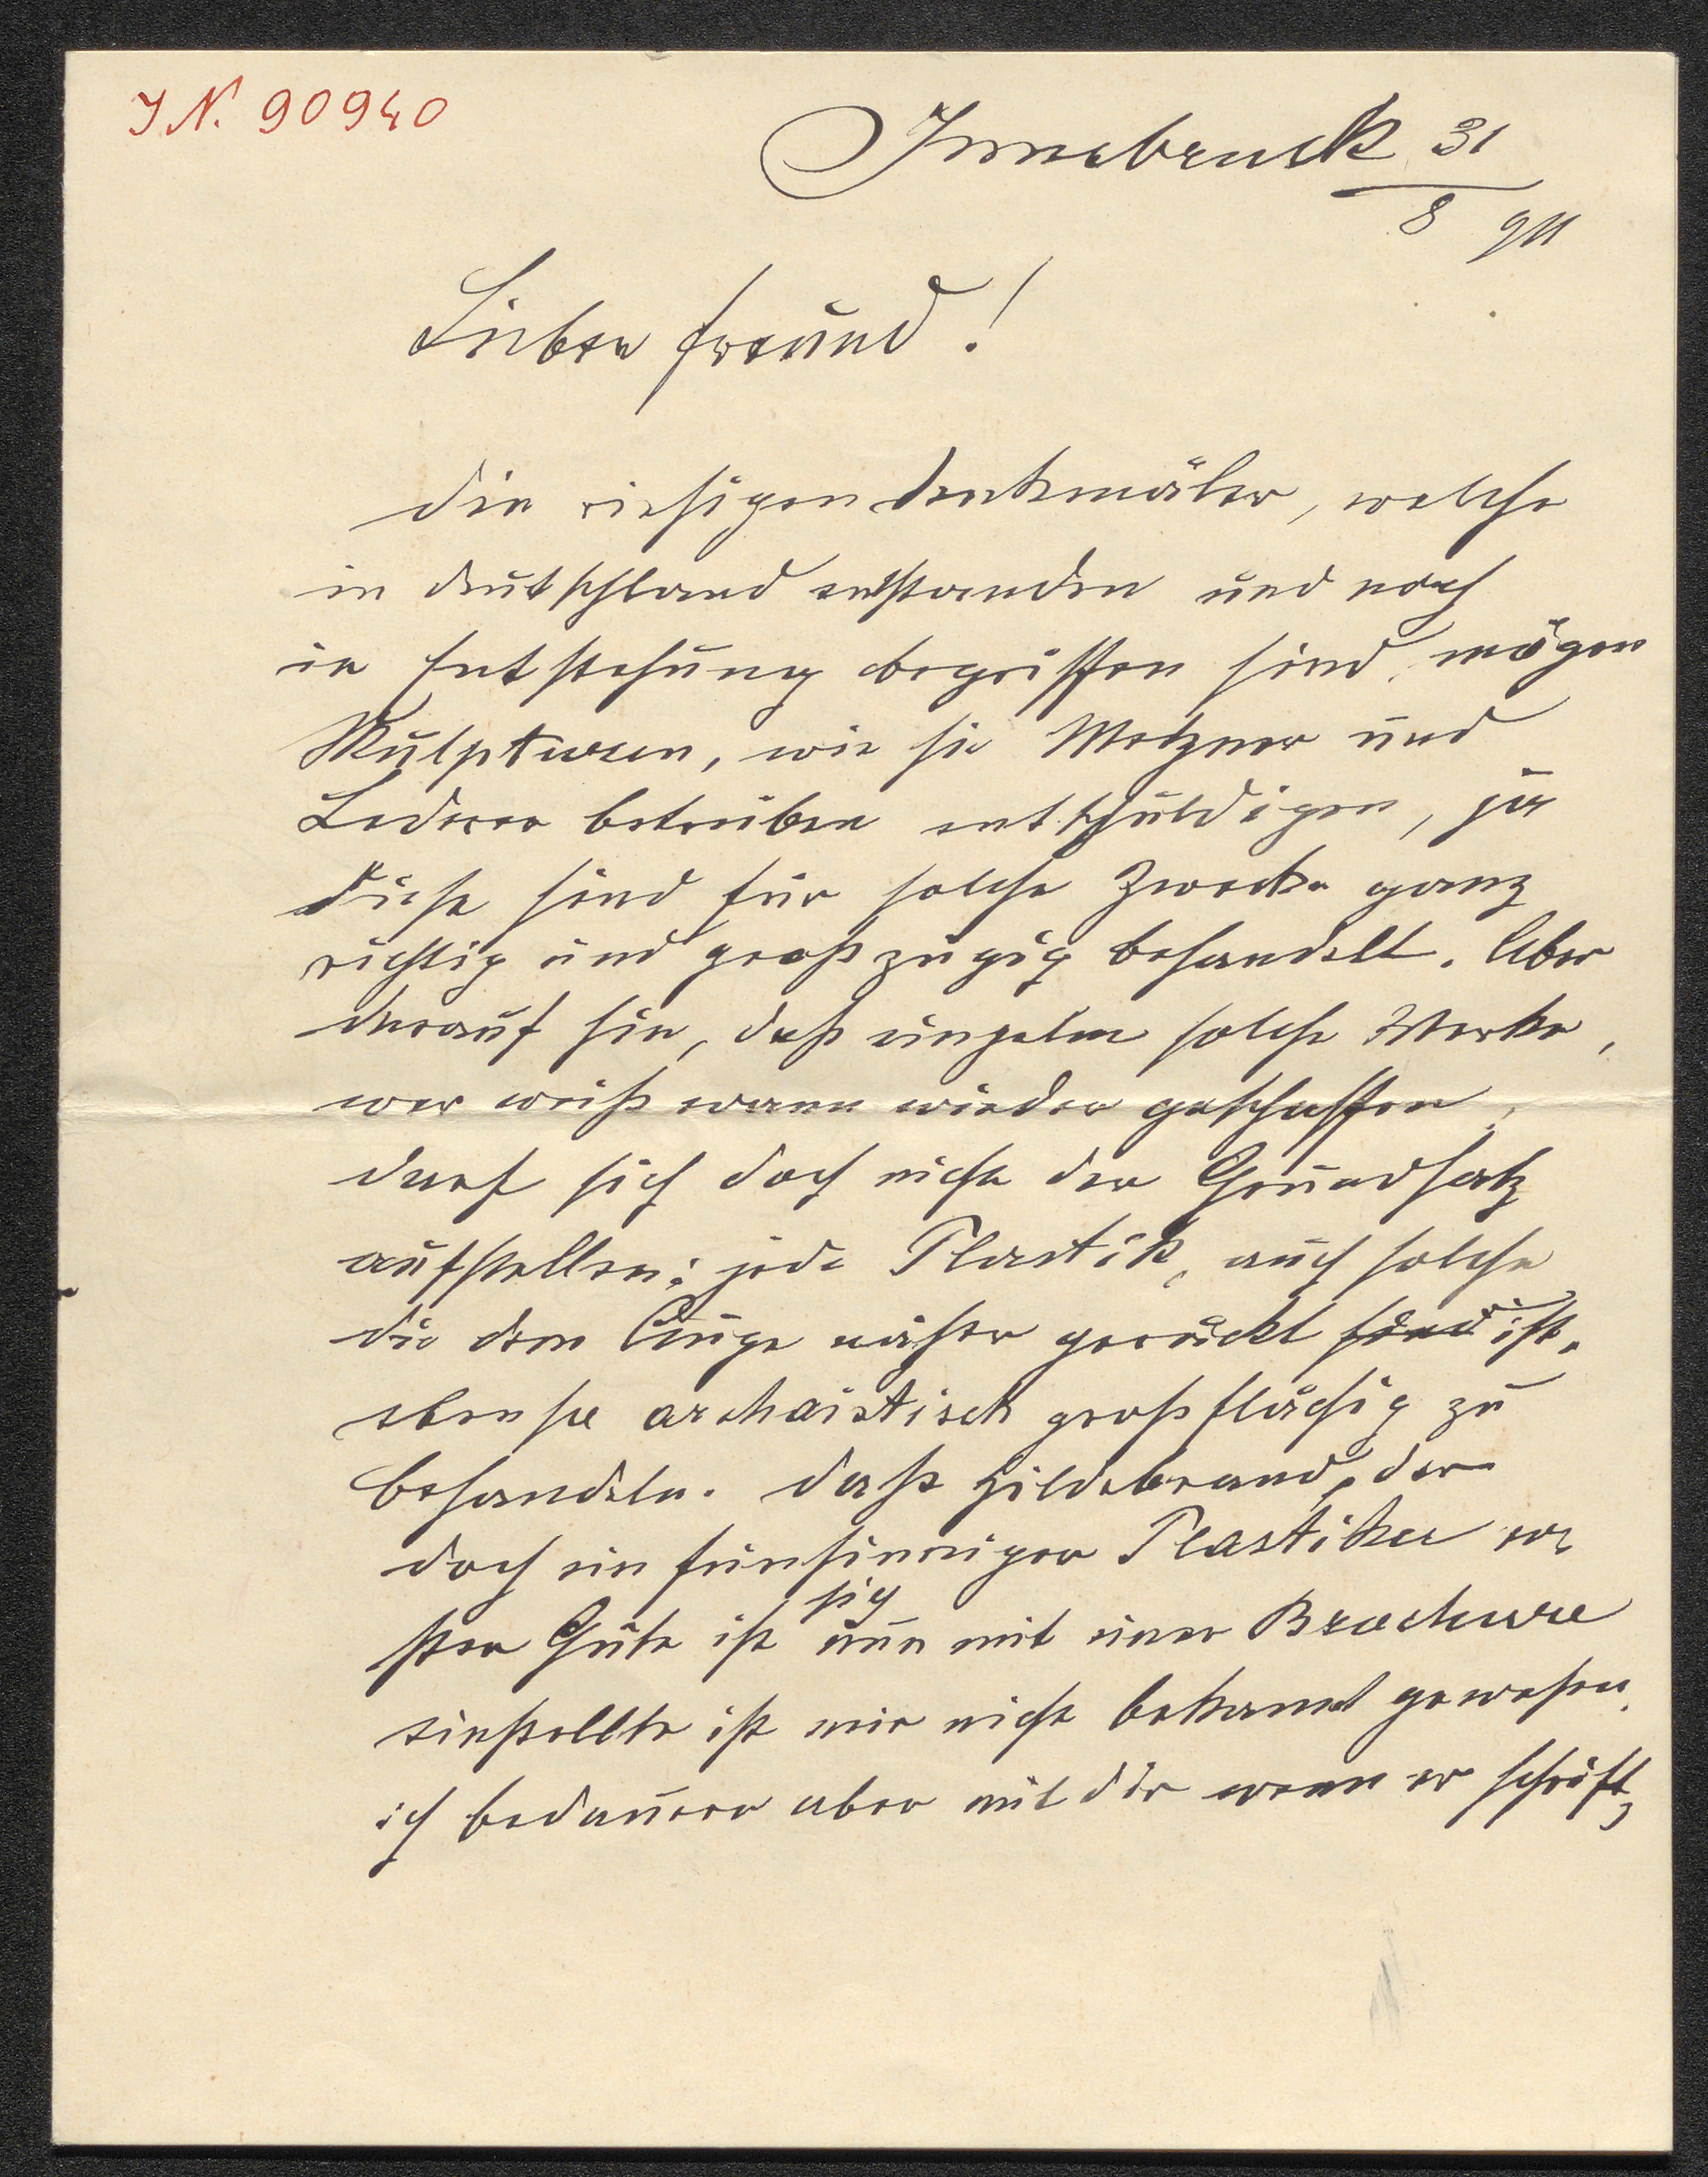 J N. 90940
Innsbruck 31
8 911
Lieber Freund!
Die riesigen Denkmäler, welche
in Deutschland entstanden und noch
in Entstehung begriffen sind, mögen
Skulpturen, wie sie Metzner und
Lederer betreiben entschuldigen, ja
diese sind für solche Zwecke ganz
richtig und großzügig behandelt. Aber
darauf hin, daß einzelne solche Werke,
wer weiß wann wieder geschaffen,
darf sich doch nicht der Grundsatz
aufstellen: jede Plastik, auch solche
die dem Auge näher gerückt sind ist,
ebenso archaistisch großflächig zu
behandeln. Daß Hildebrand, der
doch ein feinsinniger Plastiker er,
ster Güte ist sich nun mit einer Brochure
einstellte ist mir nicht bekannt gewesen,
ich bedauere aber mit dir wenn er schrift,